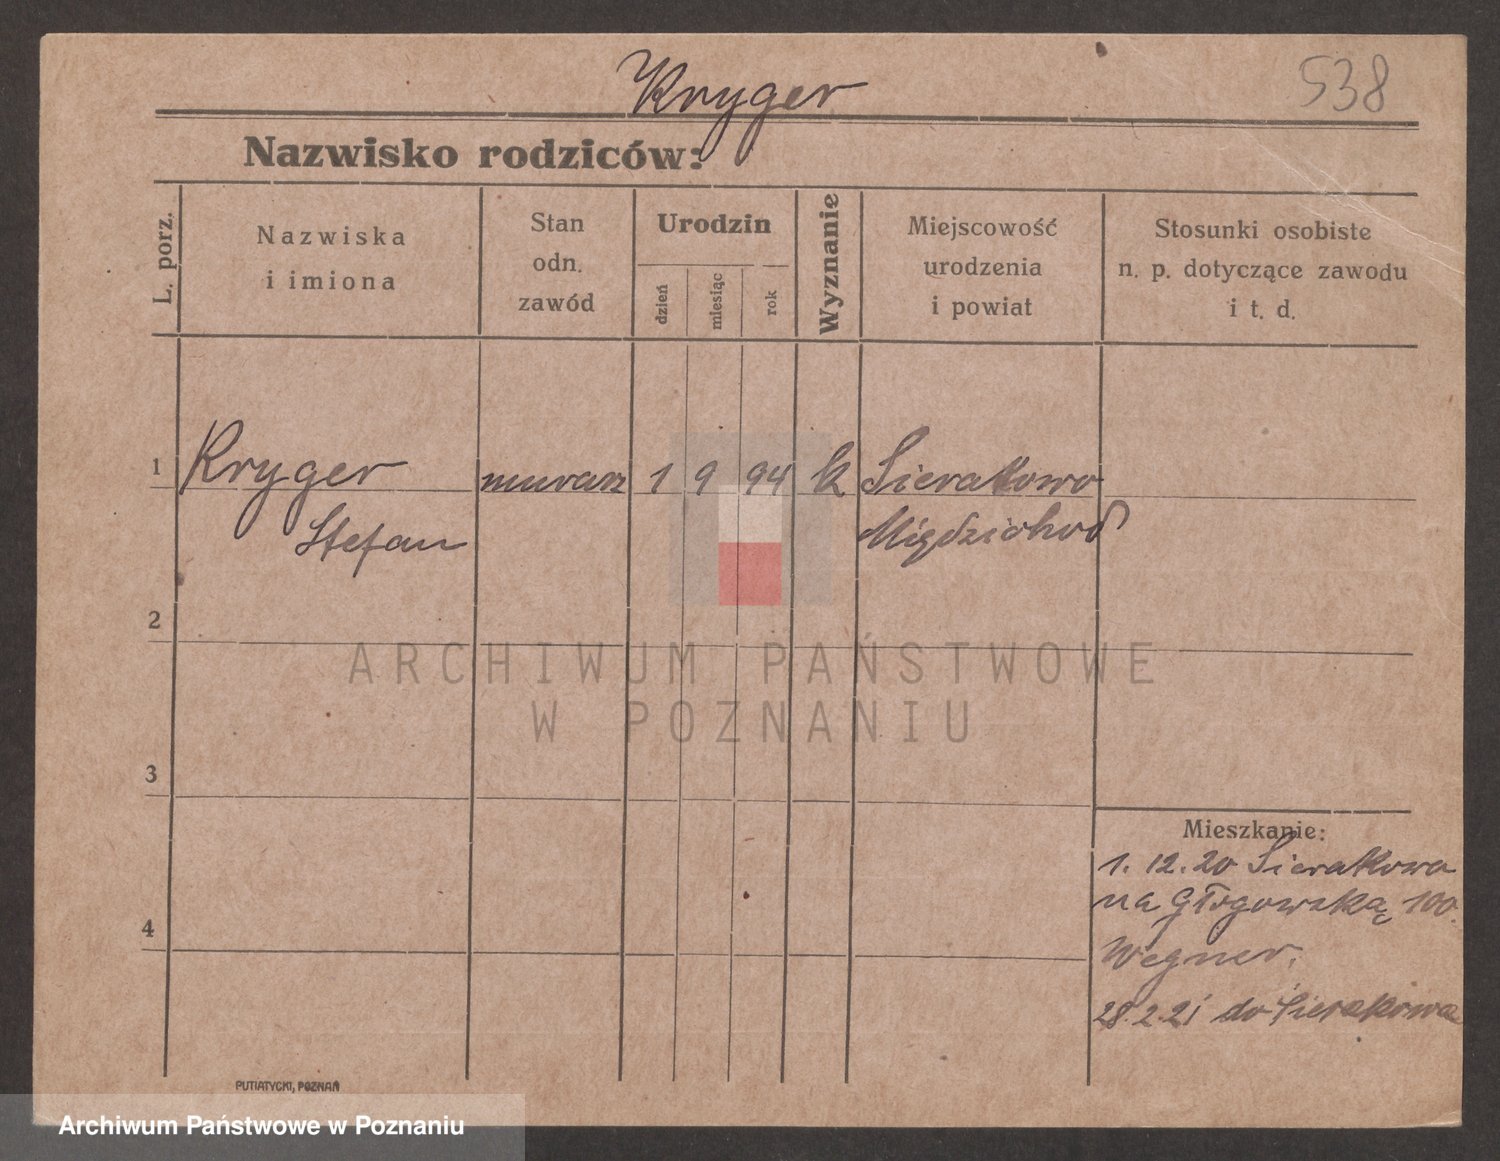 Kryger
538
Nazwisko rodziców:
L. porz.
Nazwiska
i imiona
Stan
odn.
zawód
Urodzin
dzień
miesiąc
rok
Wyznanie
Miejscowość
urodzenia
i powiat
Stosunki osobiste
n. p. dotyczące zawodu
i t. d.
1 Kryger murarz 1 9 94 k Sierakowo
Stefan Międzichod
2
ARCHIWUM PAŃSTWOWE
W POZNANIU
3
4
Mieszkanie:
1. 12. 20 Sierakowa
na Głogowską 100.
Wegner.
28. 2. 21 do Sierakowa
PUTIATYCKI, POZNAŃ
Archiwum Państwowe w Poznaniu